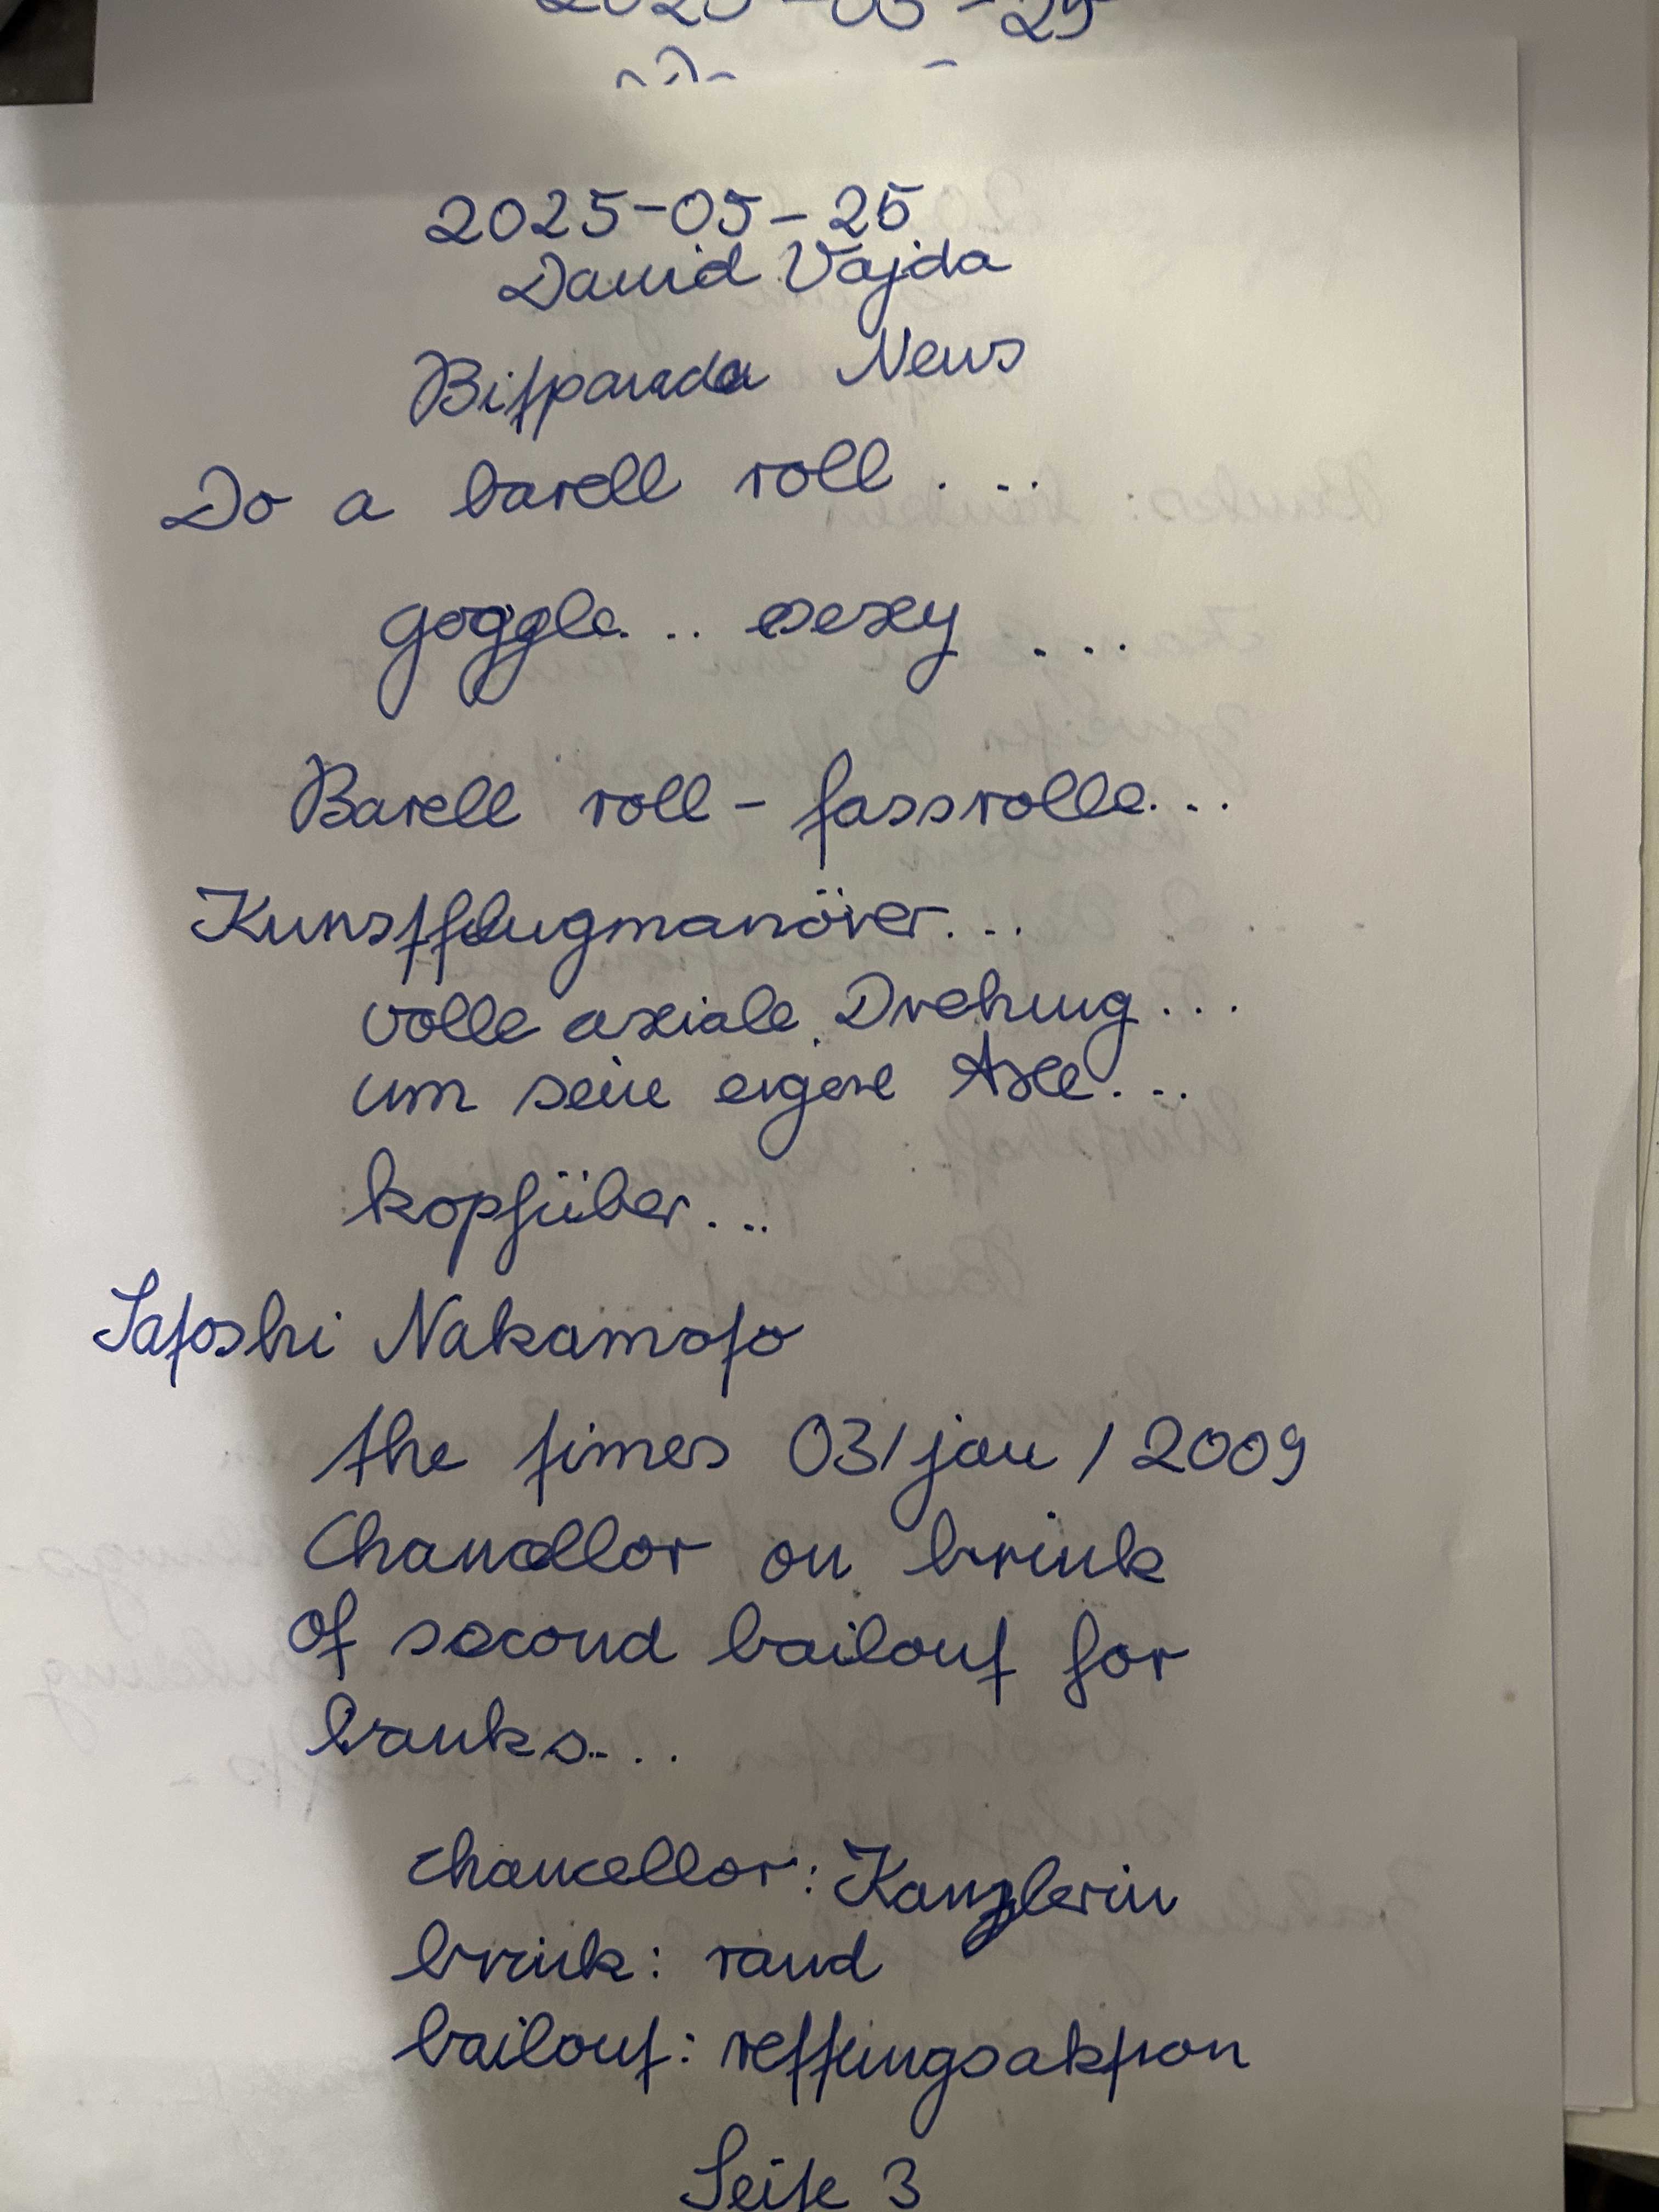 2025-05-25
2025-05-25
David Vajda
Bitpanda News
Do a barell roll ...
goggle... sexy ...
Barell roll - fassrolle...
Kunstflugmanöver...
volle axiale Drehung...
um seine eigene Axe...
kopfüber...
Satoshi Nakamoto
the times 03/jan/2009
Chancellor on brink
of second bailout for
banks...
chancellor: Kanzlerin
brink: rand
bailout: rettungsaktion
Seite 3